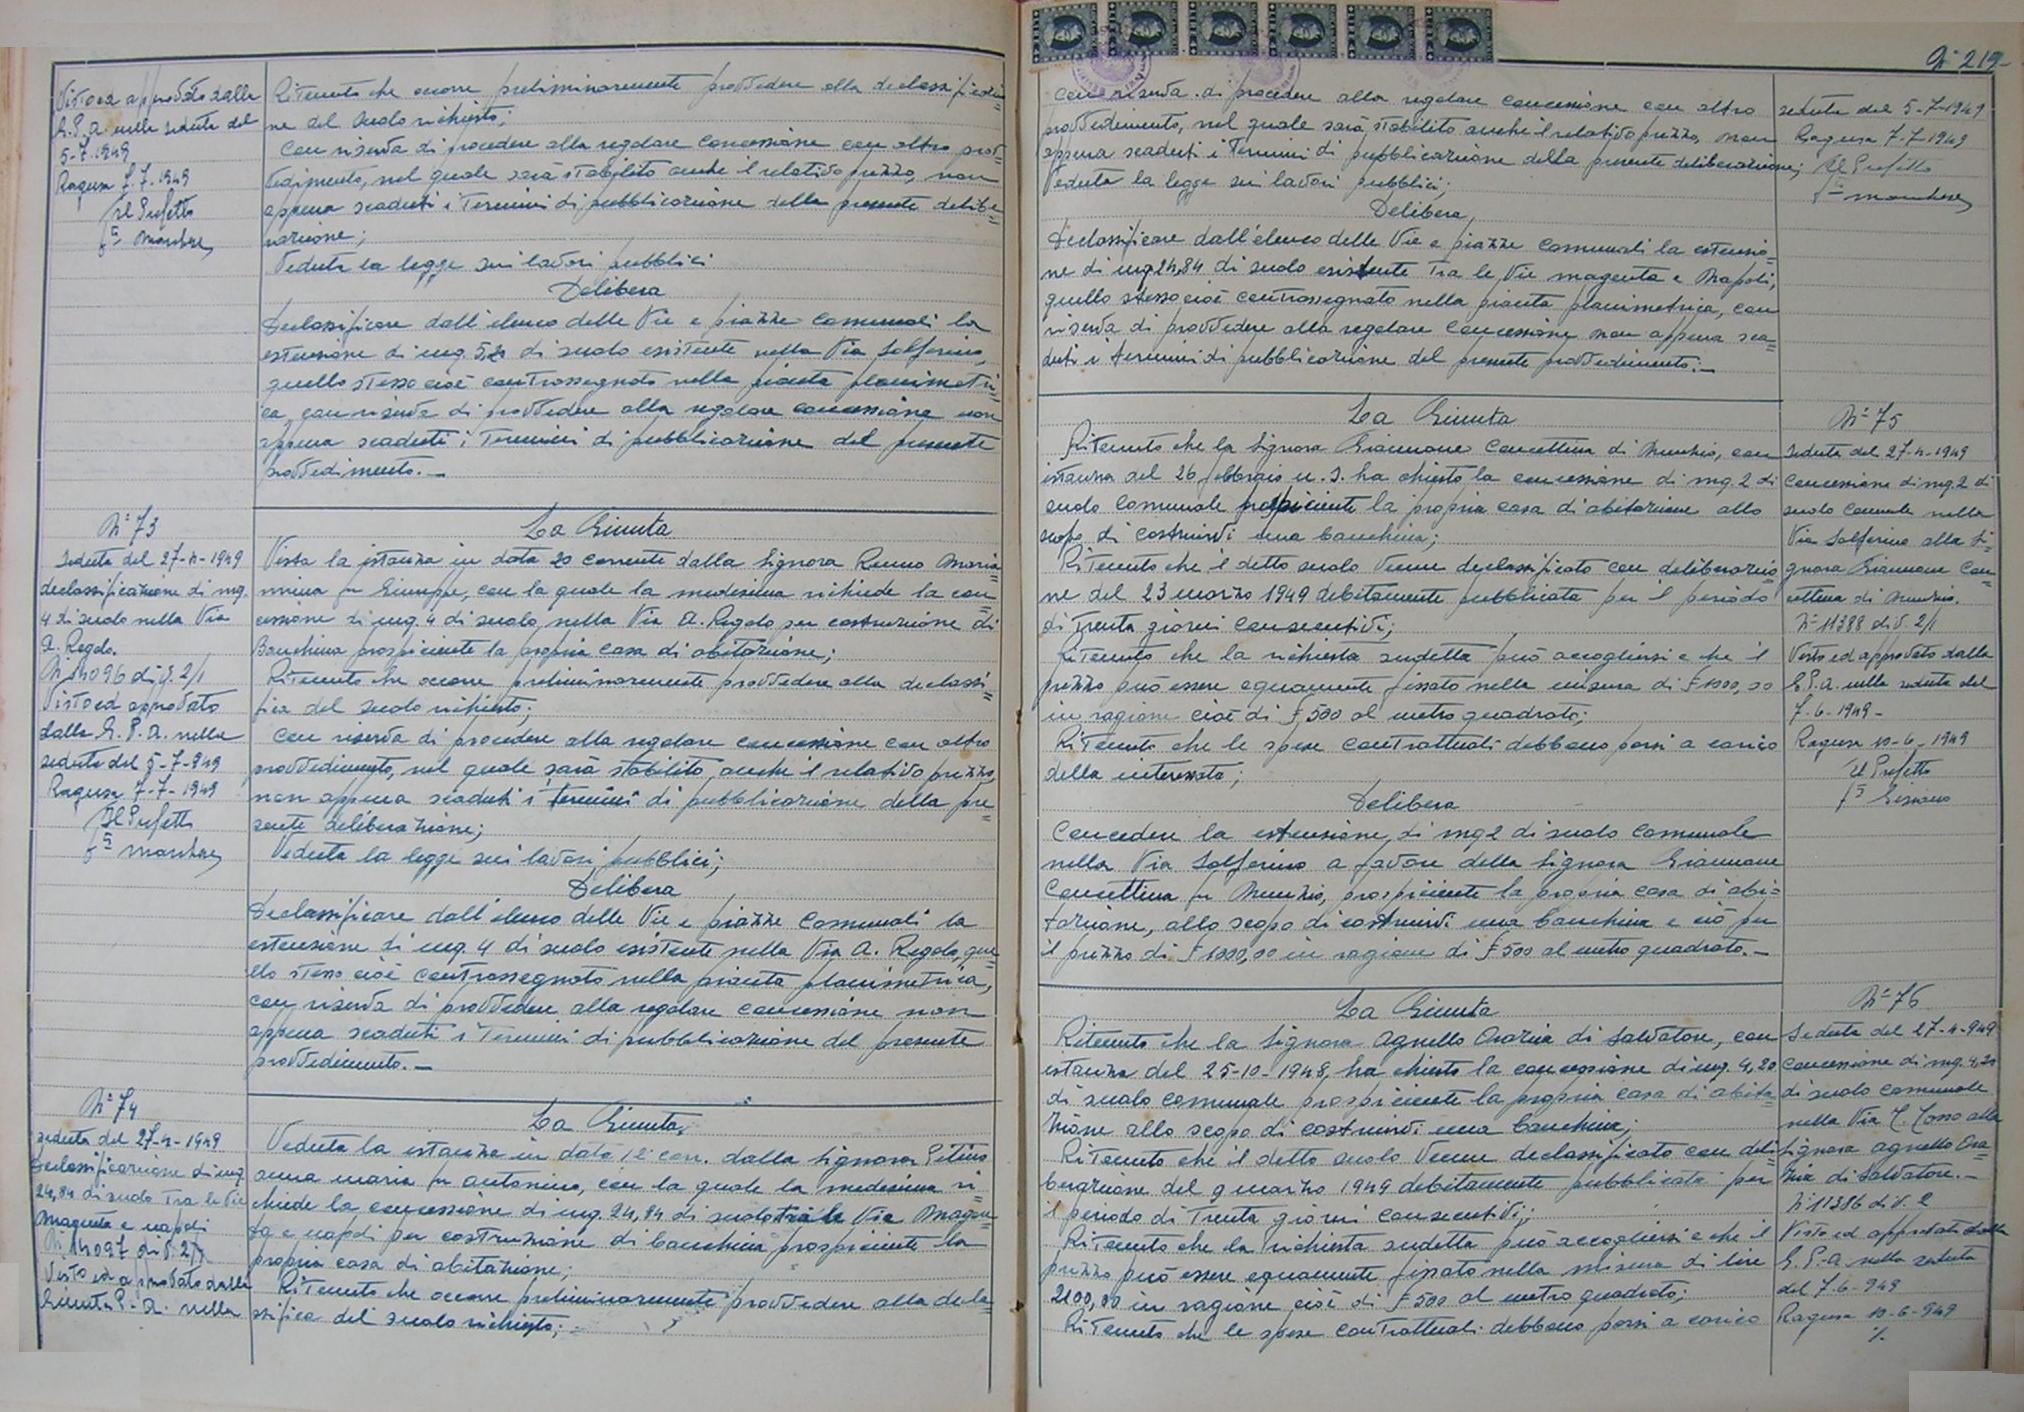 Visto ed approvato dalla
G.P.A. nella seduta del
5-7-1949
Ragusa 7-7-1949
Il Prefetto
Ritenuto che occorre preliminarmente provvedere alla declassificazio=
ne del suolo richiesto;
Con riserva di procedere alla regolare concessione con altro prov=
vedimento, nel quale sarà stabilito anche il relativo prezzo, non
appena scaduti i termini di pubblicazione della presente delibe=
razione;
Veduta la legge sui lavori pubblici
Delibera
Declassificare dall'elenco delle Vie e piazze comunali la
estensione di mq. di suolo esistente nella Via Solferino,
quello stesso cioè contrassegnato nella pianta planimetri=
ca, con riserva di provvedere alla regolare concessione non
appena scaduti i termini di pubblicazione del presente
provvedimento.-
N° 73
Seduta del 27-4-1949
declassificazione di mq.
4 di suolo nella Via
A. Regolo.
N° 14096 div. 2/1
Visto ed approvato
dalla G.P.A. nella
seduta del 5-7-949
Ragusa 7-7-1949
Il Prefetto
La Giunta
Vista la istanza in data 20 corrente dalla Signora Maria=
nnina fu Giuseppe, con la quale la medesima richiede la con=
cessione di mq. 4 di suolo, nella Via A. Regolo per costruzione di
Banchina prospiciente la propria casa di abitazione;
Ritenuto che occorre preliminarmente provvedere alla declassi=
fica del suolo richiesto;
Con riserva di procedere alla regolare concessione con altro
provvedimento, nel quale sarà stabilito anche il relativo prezzo,
non appena scaduti i termini di pubblicazione della pre=
sente deliberazione;
Veduta la legge sui lavori pubblici;
Delibera
Declassificare dall'elenco delle Vie e piazze Comunali la
estensione di mq. 4 di suolo esistente nella Via A. Regolo, que=
llo stesso cioè contrassegnato nella pianta planimetrica,
con riserva di provvedere alla regolare concessione non
appena scaduti i termini di pubblicazione del presente
provvedimento.-
N° 74
seduta del 27-4-1949
Declassificazione di mq.
24,84 di suolo tra le Vie
Magenta e Napoli
N° 14097 div. 2/1
Visto ed approvato dalla
Giunta P.A. nella
La Giunta,
Veduta la istanza in data 12 corr. dalla Signora
Anna Maria fu Antonino, con la quale la medesima ri=
chiede la concessione di mq. 24,84 di suolo tra le Vie Magen=
ta e Napoli per costruzione di banchina prospiciente la
propria casa di abitazione;
Ritenuto che occorre preliminarmente provvedere alla decla=
ssifica del suolo richiesto;
N° 219-
con riserva di procedere alla regolare concessione con altro
provvedimento, nel quale sarà stabilito anche il relativo prezzo, non
appena scaduti i termini di pubblicazione della presente deliberazione;
Veduta la legge sui lavori pubblici;
Delibera,
Declassificare dall'elenco delle Vie e piazze comunali la estensio=
ne di mq 24,84 di suolo esistente tra le Vie Magenta e Napoli,
quello stesso cioè contrassegnato nella pianta planimetrica, con
riserva di provvedere alla regolare concessione non appena sca=
duti i termini di pubblicazione del presente provvedimento.-
seduta del 5-7-1949
Ragusa 7-7-1949
Il Prefetto
La Giunta
Ritenuto che la Signora Giannone Concettina di Nunzio, con
istanza del 26 febbraio u.s. ha chiesto la concessione di mq. 2 di
suolo comunale prospiciente la propria casa di abitazione allo
scopo di costruirvi una banchina;
Ritenuto che il detto suolo venne declassificato con deliberazio=
ne del 23 marzo 1949 debitamente pubblicata per il periodo
di trenta giorni consecutivi;
Ritenuto che la richiesta sudetta può accogliersi e che il
prezzo può essere equamente fissato nella misura di £ 1000,00
in ragione cioè di £ 500 al metro quadrato;
Ritenuto che le spese contrattuali debbono porsi a carico
della interessata;
Delibera
Concedere la estensione, di mq 2 di suolo comunale
nella Via Solferino a favore della Signora Giannone
Concettina fu Nunzio, prospiciente la propria casa di abi=
tazione, allo scopo di costruirvi una banchina e ciò per
il prezzo di £ 1000,00 in ragione di £ 500 al metro quadrato.-
N° 75
Seduta del 27-4-1949
Concessione di mq. 2 di
suolo comunale nella
Via Solferino alla Si=
gnora Giannone Con=
cettina di Nunzio.
N° 11388 div. 2/1
Visto ed approvato dalla
G.P.A. nella seduta del
7-6-1949-
Ragusa 10-6-1949
Il Prefetto
La Giunta
Ritenuto che la Signora Agnello Orazia di Salvatore, con
istanza del 25-10-1948, ha chiesto la concessione di mq. 4,20
di suolo comunale prospiciente la propria casa di abita=
zione allo scopo di costruirvi una banchina;
Ritenuto che il detto suolo venne declassificato con deli=
berazione del 9 marzo 1949 debitamente pubblicata per
il periodo di trenta giorni consecutivi;
Ritenuto che la richiesta sudetta può accogliersi e che il
prezzo può essere equamente fissato nella misura di lire
2100,00 in ragione cioè di £ 500 al metro quadrato;
Ritenuto che le spese contrattuali debbono porsi a carico
N° 76
Seduta del 27-4-949
Concessione di mq. 4,20
di suolo comunale
nella Via T. Tasso alla
Signora Agnello Ora=
zia di Salvatore.-
N° 11386 div. 2
Visto ed approvato dalla
G.P.A. nella seduta
del 7-6-949
Ragusa 10-6-949
./.